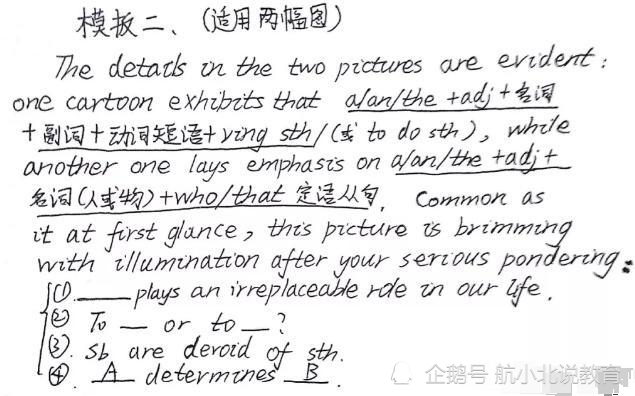 模板二、(适用两幅图)
The details in the two pictures are evident:
one cartoon exhibits that a/an/the +adj+名词
+副词+动词短语+ving sth/(或 to do sth), while
another one lays emphasis on a/an/the +adj+
名词(人或物)+who/that 定语从句. Common as
it at first glance, this picture is brimming
with illumination after your serious pondering:
①. ____ plays an irreplaceable role in our life.
② To __ or to __?
③. sb are devoid of sth.
④. A determines B.
企鹅号 航小北说教育